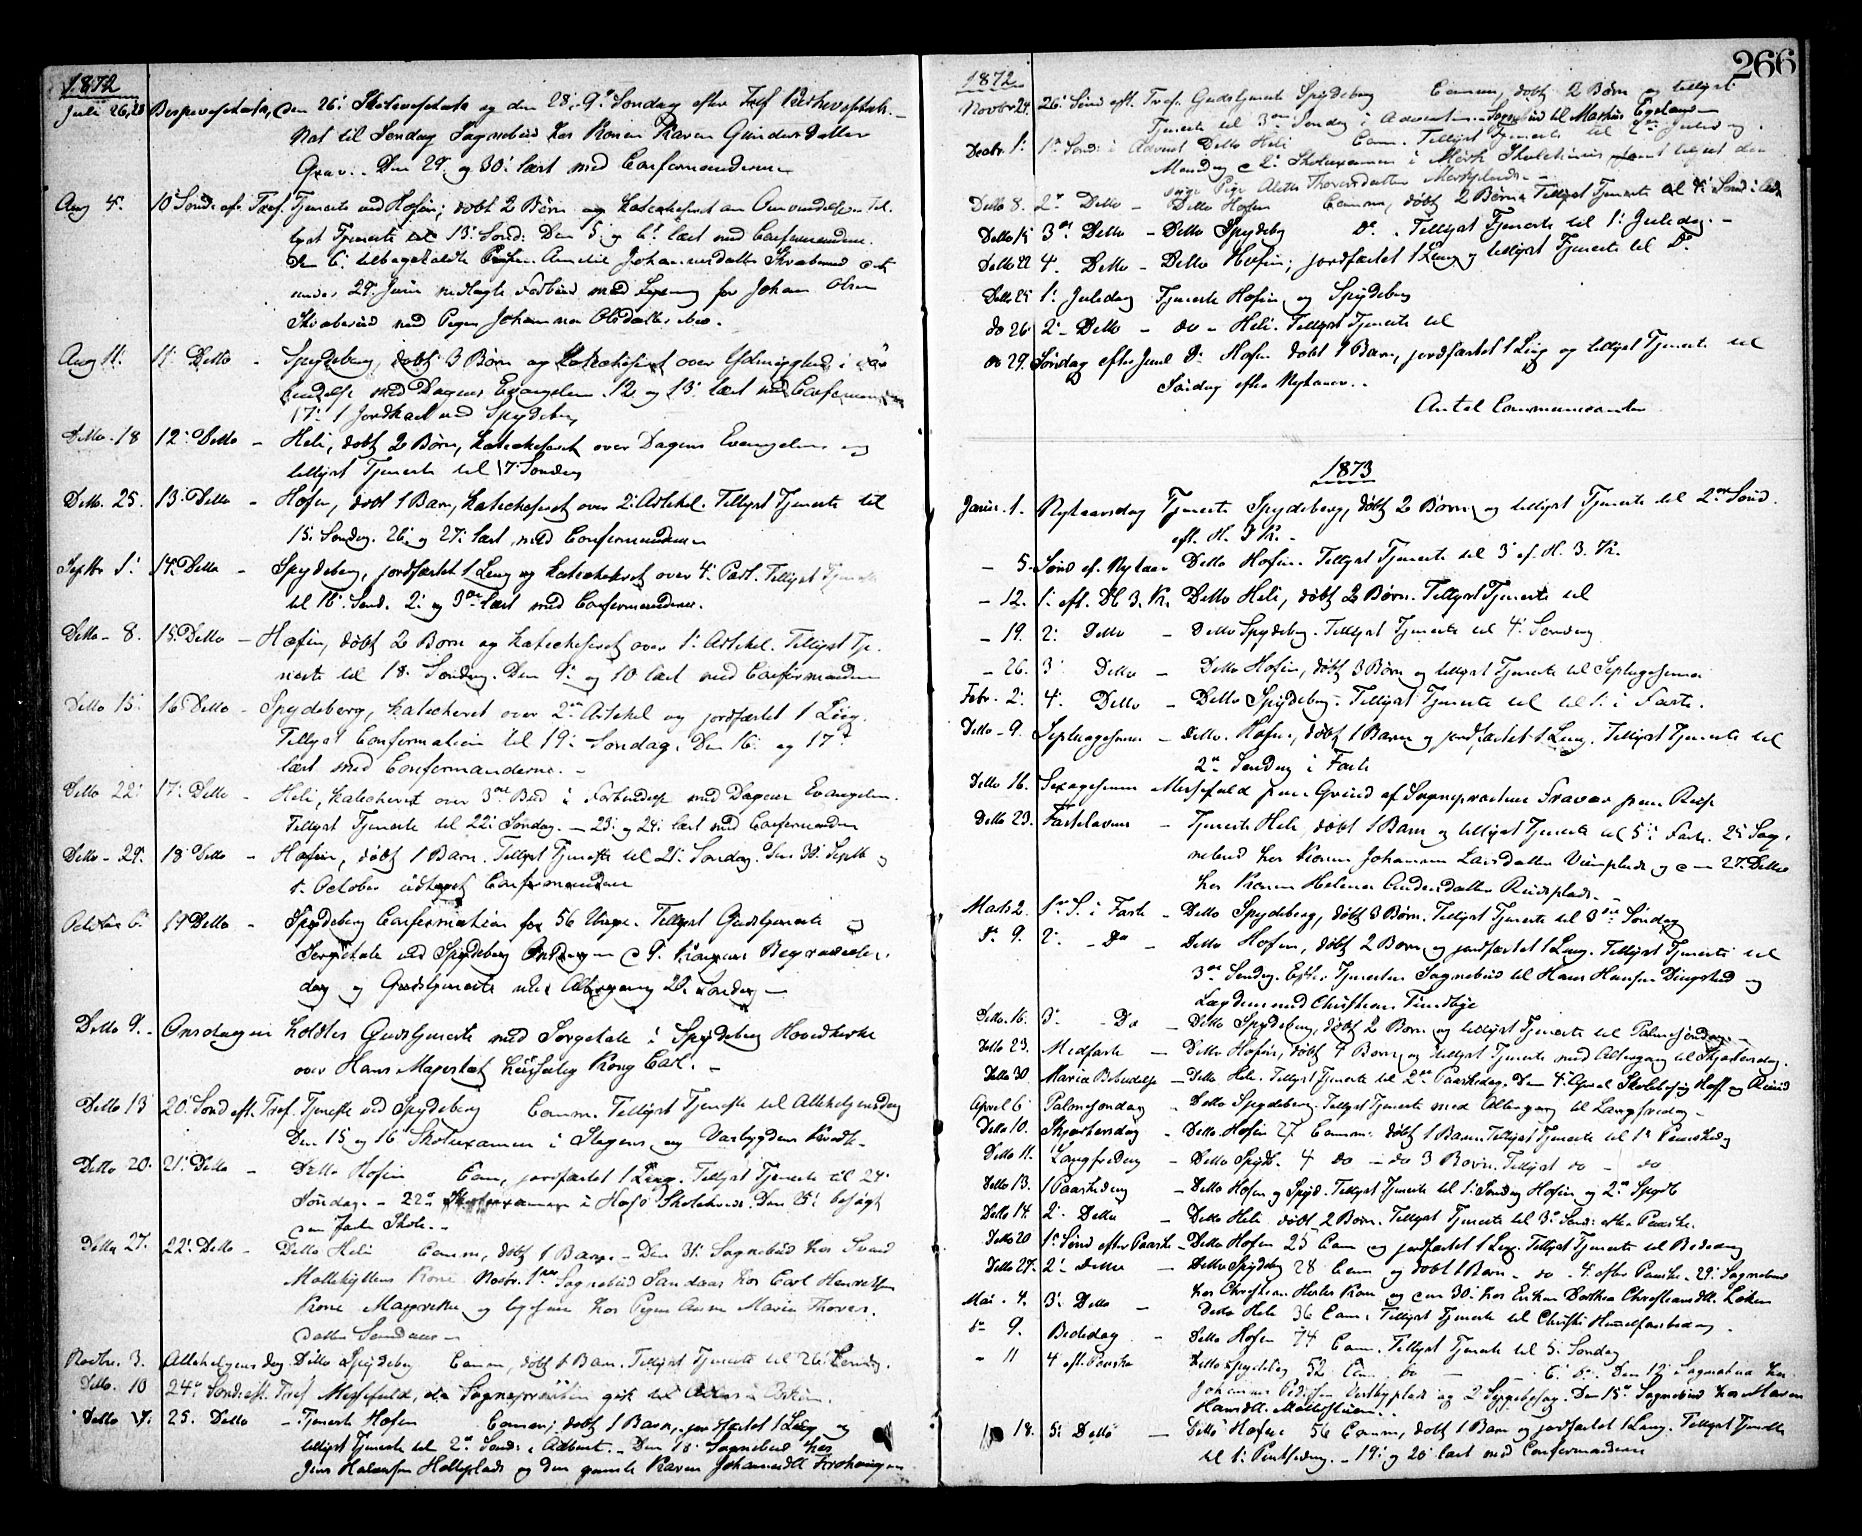 266
1872
Juli 26, 28 den 26: og den 28: 9de Søndag efter Tref.
Nat til Søndag Sognebud hos Konen Karen Gundersdatter
Grav. Den 29: og 30: læst med Confirmanderne
Aug 4: 10 Sønd: eft: Tref. Tjeneste ved Hofin; døbt 2 Børn og katechiseret om Til-
lyst Tjeneste til 13: Sønd: Den 5: og 6: læst med Confirmanderne.
Den 6: tilbagekaldte Amelie Johannesdatter
under 29: Juni nedlagte Forbud med Lysning for Johan Olsen
med Pigen Johanne Olsdatter
Aug 11: 11: Detto - Spydeberg, døbt 3 Børn og katechiseret over Ydmyghed i For
bindelse med Dagens Evangelium. 12 og 13: læst med Confirmanderne
17: 1 Jordkast ved Spydeberg
Detto 18 12: Detto - Heli, døbt 2 Børn, katechiseret over Dagens Evangelium og
tillyst Tjeneste til 17: Søndag
Detto 25. 13: Detto - Hofin, døbt 1 Barn, katechiseret over 2: Artikel. Tillyst Tjeneste til
15: Søndag. 26: og 27: læst med Confirmanderne
Septbr 1: 14: Detto - Spydeberg, jordfæstet 1 Liig og katechiseret over 4: Part. Tillyst Tjeneste
til 16: Sønd. 2: og 3die læst med Confirmanderne.
Detto - 8. 15: Detto - Hofin, døbt 2 Børn og katechiseret over 1: Artikel. Tillyst Tje-
neste til 18: Søndag. Den 9: og 10 læst med Confirmanderne
Detto 15: 16 Detto - Spydeberg, katechiseret over 2den Artikel og jordfæstet 1 Liig.
Tillyst Confirmation til 19: Søndag. Den 16: og 17de
læst med Confirmanderne. -
Detto 22: 17: Detto - Heli, katechiseret over 3die Bud i Forbindelse med Dagens Evangelium.
Tillyst Tjeneste til 22: Søndag. - 23: og 24: læst med Confirmanderne
Detto - 29. 18: Detto - Hofin, døbt 1 Barn. Tillyst Tjeneste til 21: Søndag. Den 30: Septb og
1: October Confirmanderne
October 6: 19 Detto - Spydeberg Confirmation for 56 Unge. Tillyst Gudstjeneste og
Sørgetale ved Spydeberg Onsdagen d 9: Kongens Begravelses-
dag og Gudstjeneste med Altergang 20: Søndag -
Detto 9. - Onsdagen holdtes Gudstjeneste med Sørgetale i Spydeberg Hovedkirke
over Hans Majestæt Høisalig Kong Carl. -
Detto 13 20: Sønd eft. Tref. Tjeneste ved Spydeberg Comm. Tillyst Tjeneste til Allehelgensdag
Den 15 og 16 Skoleexamen i Stegens og Varbygdens Kreds.
Detto 20. 21: Detto - Detto Hofin Com, jordfæstet 1 Liig. Tillyst Tjeneste til 24:
Søndag. - 22de Skoleexamen i Skolekreds. Den besøgt
den faste Skole. -
Detto 27. 22: Detto - Detto Heli Comm, døbt 1 Barn. - Den 31: Sognebud hos Svend
Kone Novbr. 1ste Sognebud Sandaas hos Carl Henriksen
Kone og ligesaa hos Pigen Anne Marie Thores-
datter -
Novbr. 3. Allehelgensdag Detto Spydeberg Comm, døbt 1 Barn. Tillyst Tjeneste til 26: Søndag.
Detto. 10 24de Sønd: eft. Tref Messefald, da Sognepræsten gik til i Askim.
Detto 17: 25. Detto - Tjeneste Hofin Comm; døbt 1 Barn, jordfæstet 1 Liig og
tillyst Tjeneste til 2den Sønd: i Advent. - Den 18: Sognebud hos
og den gamle Karen Johannesdtt
1872
Novbr 24. 26: Sønd eft. Tref. Gudstjeneste Spydeberg Comm, døbt 2 Børn og tillyst
Tjeneste til 3die Søndag i Advent. - Sognebud til Mathias
Decbr. 1: 1ste Sønd: i Advent Detto Heli Com. Tillyst Tjeneste til 2den Juledag.
Mandag d 2: Skoleexamen i Skolehuus samt besøgt den
syge Pige Thoresdatter -
Detto 8. 2den Detto - Detto Hofin Comm, døbt 2 Børn. Tillyst Tjeneste til 4: Sønd: i Adv
Detto 15 3die Detto - Detto Spydeberg Do. Tillyst Tjeneste til 1: Juledag. -
Detto 22 4. Detto - Detto Hofin; jordfæstet 1 Liig og tillyst Tjeneste til Do
Detto 25 1: Juledag Tjeneste Hofin og Spydeberg
do 26: 2: Detto - do - Heli. Tillyst Tjeneste til
do 29. Søndag efter Juul D: Hofin døbt 1 Barn, jordfæstet 1 Liig og tillyst Tjeneste til
Søndag efter Nytaar. -
Antal Communicanter
1873
Januar. 1. Nytaarsdag Tjeneste Spydeberg, døbt 2 Børn og tillyst Tjeneste til 2den Sønd.
eft. H. 3 K. -
- 5. Sønd ef. Nytaar Detto Hofin. Tillyst Tjeneste til 3 ef. H. 3. K.
- 12. 1: eft. H. 3. K. Detto Heli, døbt 2 Børn. Tillyst Tjeneste til
- 19. 2: Detto - Detto Spydeberg. Tillyst Tjeneste til 4: Søndag
- 26. 3: Detto - Detto Hofin, døbt 3 Børn og tillyst Tjeneste til Septuagesima
Febr. 2: 4: Detto - Detto Spydeberg - Tillyst Tjeneste til til 1: i Faste.
Detto - 9. Septuagesima - Detto. Hofin, døbt 1 Barn og jordfæstet 1 Liig. Tillyst Tjeneste til
2den Søndag i Faste
Detto 16. Sexagesima Messefald paa Grund af Sognepræstens Fravær paa Reise
Detto 23. Fastelavns - Tjeneste Heli, døbt 1 Barn og tillyst Tjeneste til 5: i Faste. 25 Sog-
nebud hos Konen Johanne Larsdatter og den 27: Detto
hos Konen Helene
Marts 2. 1ste S. i Faste - Detto Spydeberg, døbt 3 Børn. Tillyst Tjeneste til 3die Søndag
Do 9. 2: - Do - Detto Hofin, døbt 2 Børn og jordfæstet 1 Liig. Tillyst Tjeneste til
3die Søndag. Efter Tjenesten Sognebud til Hans Hansen Dingstad og
Lægdemand Christian
Detto. 16. 3: - Do - Detto Spydeberg, døbt 2 Børn og tillyst Tjeneste til Palmesøndag. -
Detto 23. Midfaste - Detto Hofin, døbt 4 Børn og tillyst Tjeneste med Altergang til Skjærtorsdag.
Detto 30. Maria Bebudelse - Detto Heli. Tillyst Tjeneste til 2den Paaskedag. Den 4: April
April 6 Palmesøndag - Detto Spydeberg. Tillyst Tjeneste med Altergang til Langfredag -
Detto 10. Skjærtorsdag - Detto Hofin 27 Comm: døbt 1 Barn. Tillyst Tjeneste til 1ste Paaskedag
Detto 11. Langfredag - Detto Spydb. 4 do - do 3 Børn. Tillyst do - do
Detto 13. 1 Paaskedag - Detto Hofin og Spyd. Tillyst Tjeneste til 1: Søndag Hofin og 2den Spydb
Detto 14. 2: Detto - Detto Heli døbt 2 Børn. Tillyst Tjeneste til 3: Sønd: efter Paaske.
Detto 20 1ste Sønd efter Paaske - Detto Hofin 25 Com og jordfæstet 1 Liig. Tillyst Tjeneste til Bededag
Detto 27. 2: Detto - Detto Spydeberg 28 Com og døbt 1 Barn - do - 4: efter Paaske. - 29: Sognebud
hos Christian Kone og den 30: hos Enken Dorthea Christiansdtt. Løken
Mai. 4. 3: Detto - Detto Heli 36 Com. Tillyst Tjeneste til Christi Himmelfartsdag.
Do 9. Bededag - Detto Hofin 74 Com. Tillyst Tjeneste til 5: Søndag
- 11 4 eft. Paaske Detto Spydeberg 52 Com do - 6: do. Den 12: Sognebud hos
Johannes og 2 Sygebesøg. Den 15de Sognebud hos Maren
Hansdtt.
18. 5: Detto - Detto Hofin 56 Comm, døbt 1 Barn og jordfæstet 1 Liig. Tillyst Tjeneste
til 1: Pintsedag. - 19: og 20 læst med Confirmanderne